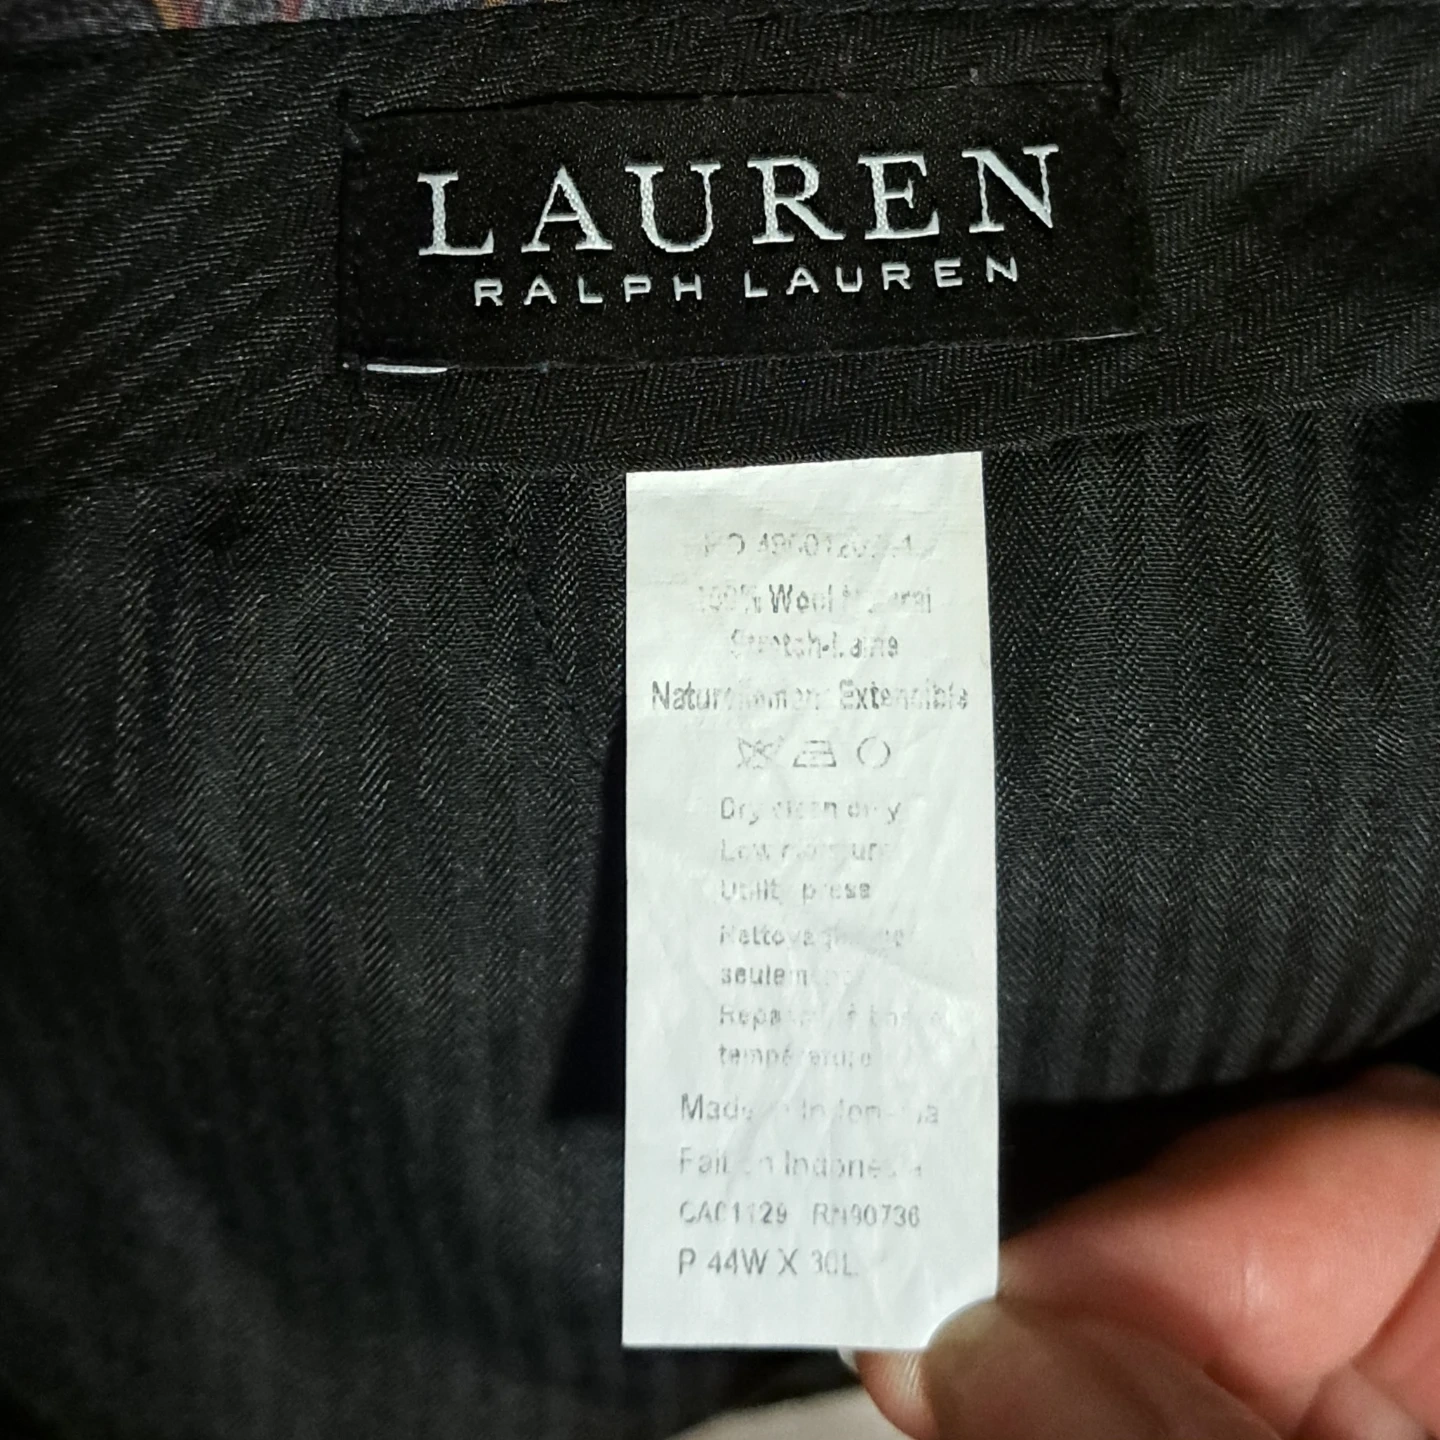 LAUREN
RALPH LAUREN
100% Wool Natural
Stretch-Laine
Naturellement Extensible
Dry clean only
Low moisture
Utility press
Nettoyage
seulement
temperature
Made in Indonesia
Fait en Indonesia
CA01129 RN90736
P 44W X 30L